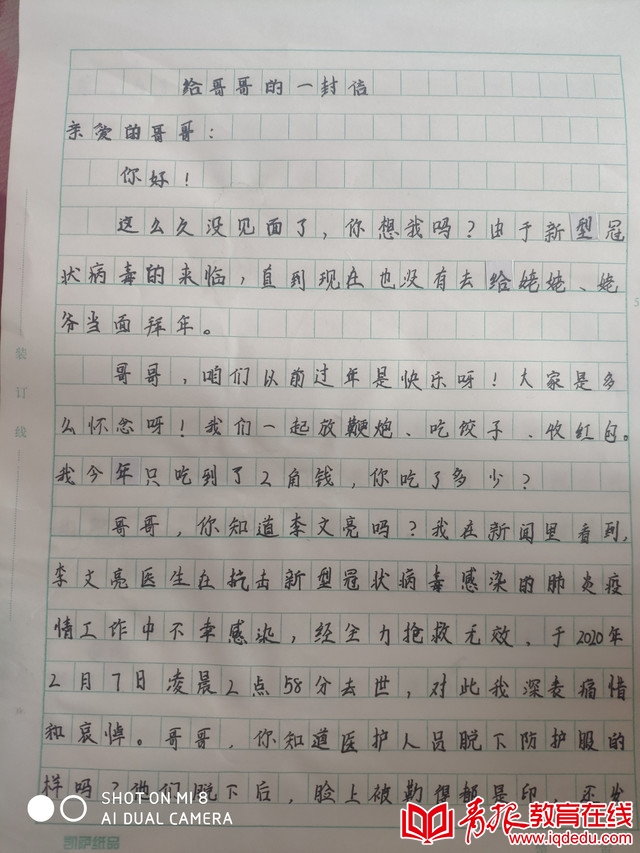 给哥哥的一封信
亲爱的哥哥：
你好！
这么久没见面了，你想我吗？由于新型冠
状病毒的来临，直到现在也没有去给姥姥、姥
爷当面拜年。
哥哥，咱们以前过年是快乐呀！大家是多
么怀念呀！我们一起放鞭炮、吃饺子、收红包。
我今年只吃到了2角钱，你吃了多少？
哥哥，你知道李文亮吗？我在新闻里看到，
李文亮医生在抗击新型冠状病毒感染的肺炎疫
情工作中不幸感染，经全力抢救无效，于2020年
2月7日凌晨2点58分去世，对此我深表痛惜
和哀悼。哥哥，你知道医护人员脱下防护服的
样吗？他们脱下后，脸上被勒得都是印，还发
装订线
5
SHOT ON MI 8
AI DUAL CAMERA
青报教育在线
www.iqdedu.com